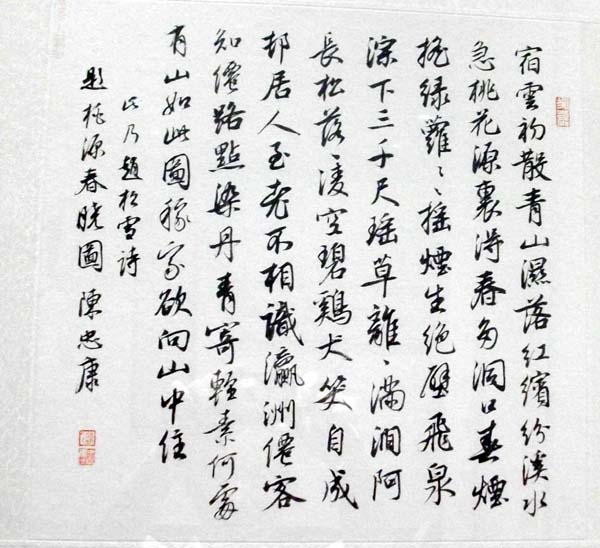 宿雲初散青山濕落紅繽紛溪水
急桃花源裏得春多洞口春煙
搖緑蘿〻搖煙生絕壁飛泉
淙下三千尺瑤草離〻滿澗阿
長松落〻凌空碧鷄犬笑自成
邨居人至老不相識瀛洲僊客
知僊路點染丹青寄輕素何處
有山如此圖移家欲向山中住
此乃趙松雪詩
題桃源春曉圖 陳忠康